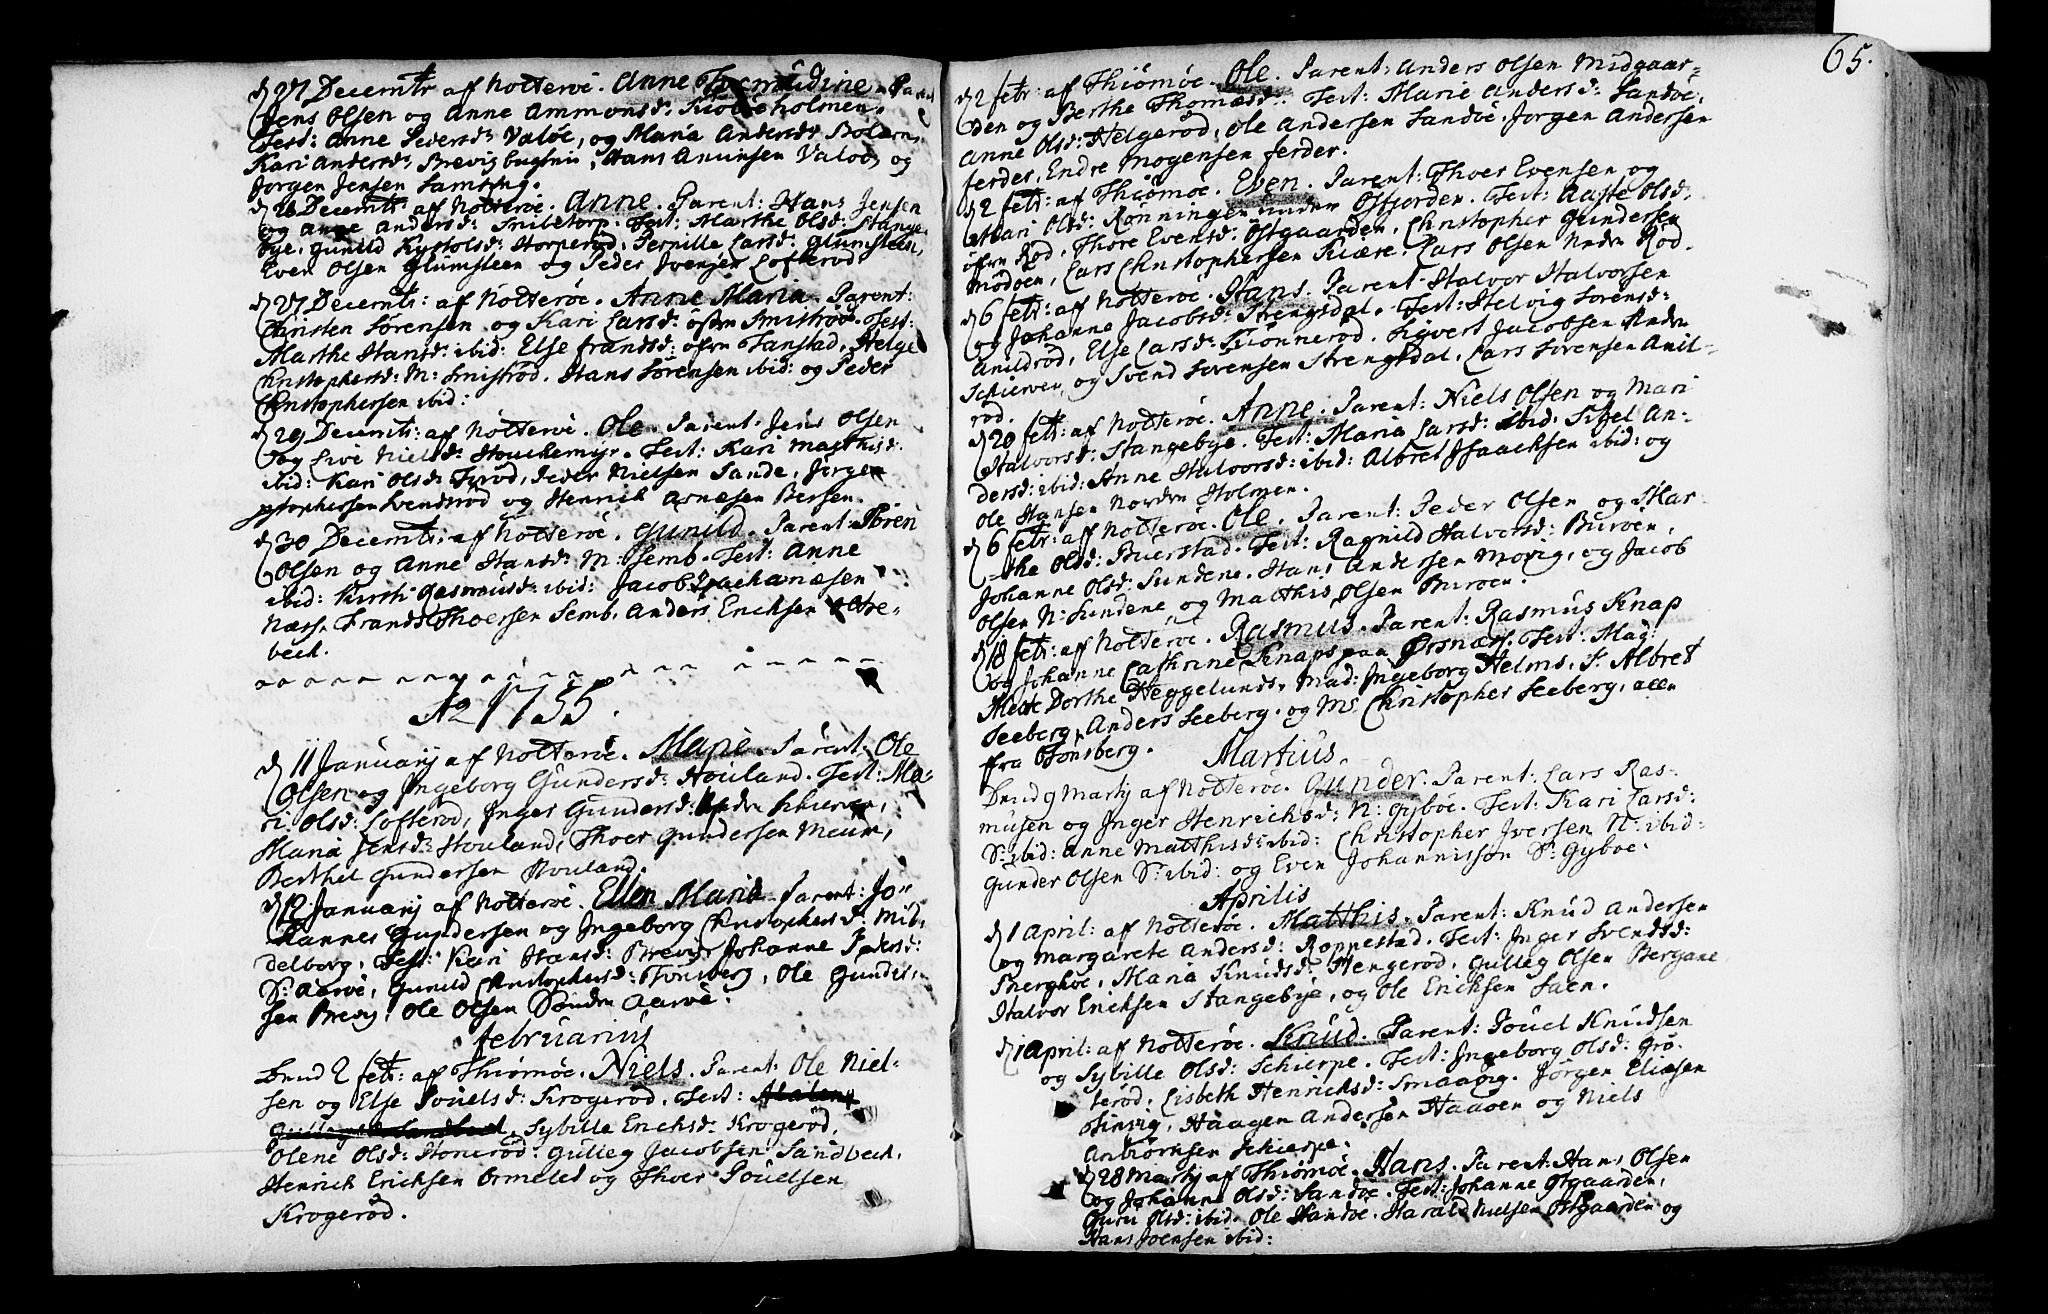 d 27 Decembr af Nötteröe. Anne Parent
Jens Olsen og Anne Ammonsd: holmen.
Test: Anne Pedersd: Valöe, og Maria Andersd: Bolærn,
Kari Andersd: Brevig Hans Amunsen Valöe, og
Jörgen Jensen
d 26 Decembr: af Nötteröe. Anne. Parent: Hans Jensen
og Anne Andersd: Snibetorp. Test: Marthe Olsd: Stange-
bye, Gunild Storperöd, Pernille Larsd: Glumsteen,
Even Olsen Glumsteen og Peder Iversen Lofteröd
d 27 Decembr: af Nötteröe. Anne Maria. Parent:
Christen Sörensen og Kari Larsd: öfre Smiströe. Test:
Marthe Hansd: ibid: Else Frandsd: öfre Tanstad, Helge
Christophersd: M: Smiströd. Hans Sörensen ibid: og Peder
Christophersen ibid:
d 29 Decembr: af Nötteröe. Ole. Parent: Jens Olsen
og Live Nielsd: Test: Kari Matthisd:
ibid: Kari Olsd: Peder Nielsen Sande, Jörgen
Svendsröd og Henrich Bersen.
d 30 Decembr: af Nötteröe. Gunild. Parent: Sören
Olsen og Anne Hansd: M: Semb. Test: Anne
ibid: Kirsti Rasmusd: ibid: Jacob
Næss. Frands Thoersen Semb. Anders Erichsen
bech.
Ao 1755.
d 11 Januarij af Nötteröe. Marie. Parent: Ole
Olsen og Ingeborg Gundersd: Houland. Test: Ma-
ri Olsd: Lofteröd, Inger Gundersd: Nedre Schierven,
Maria Jensd: Houland, Thoer Gundersen Meum,
Berthel Gundersen Houland.
d 12 Januarij af Nötteröe. Ellen Maria. Parent: Jo-
hannes Gundersen og Ingeborg Christophersd: Mid-
delborg. Test: Kari Hansd: Brevig, Johanne Pedersd:
Sr: Aaröe, Gunild Christophersd: Tönsberg, Ole Gunder-
sen Brevig, Ole Olsen Söndre Aaröe.
Februarius
Dend 2 febr: af Thiömöe. Niels. Parent: Ole Niel-
sen og Else Pouelsd: Krogeröd. Test:
Sybille Erichsd: Krogeröd.
Olene Olsd: Gulleg Jacobsen Sandbech.
Henrich Erichsen Ormelet og Thoer Pouelsen
Krogeröd.
65.
d 2 febr: af Thiömöe. Ole. Parent: Anders Olsen Midgaar-
den og Berthe Thomæsd: Test: Marie Andersd: Sandöe,
Anne Olsd: Helgeröd, Ole Andersen Sandöe. Jörgen Andersen
ferder, Endre Mogensen ferder.
d 2 febr: af Thiömöe. Even. Parent: Thoer Evensen og
Mari Olsd: Rönningen under Test: Aaste Olsd:
öfre Röd, Thore Evensd: Östgaarden, Christopher Gundersen
Mödöen, Lars Christophersen Kiære. Lars Olsen Nedre Röd.
d 6 febr: af Nötteröe. Hans. Parent: Halvor Halvorsen
og Johanne Jacobsd: Strengsdal. Test: Helvig Sörensd:
Anildröd, Else Larsd: Siövert Jacobsen Nedre
Schierven og Svend Sörensen Strengsdal. Lars Sörensen Anil-
röd.
d 20 febr: af Nötteröe. Anne. Parent: Niels Olsen og Mari
Halvorsd: Stangebye. Test: Maria Larsd: ibid: Sibel An-
dersd: ibid: Anne Halvorsd: ibid: Albret Isaachsen ibid: og
Ole Hansen Nordre Holmen.
d 6 febr: af Nötteröe. Ole. Parent: Peder Olsen og Mar-
the Olsd: Buerstad. Test: Ragnild Halvorsd: Buröen,
Johanne Olsd: Sundene. Hans Andersen Movig, og Jacob
Olsen N: Sundene og Matthis Olsen Buröen.
d 18 febr: af Nötteröe. Rasmus. Parent: Rasmus Knap
og Johanne Cathrine Knaps paa Örsnæs. Test: Mag:
Mette Dorthe Heggelunds, Mad: Ingeborg Helms, Sr. Albret
Seeberg, Anders Seeberg. og Mr Christopher Seeberg, alle
fra Tönsberg.
Martius.
Dend 9 Martij af Nötteröe. Gunder. Parent: Lars Ras-
musen og Inger Henrichsd: N: Gyböe. Test: Kari Larsd:
Sr: ibid: Anne Matthisd: ibid: Christopher Iversen N: ibid:
Gunder Olsen Sr: ibid: og Even Johannissön Sr: Gyböe.
Aprilis
d 1 April: af Nötteröe. Matthis. Parent: Knud Andersen
og Margarete Andersd: Roppestad. Test: Inger Svendsd:
Maria Knudsd: Hengeröd, Gulleg Olsen Bergane
Halvor Erichsen Stangebye, og Ole Erichsen Saen.
d 1 April: af Nötteröe. Knud. Parent: Pouel Knudsen
og Sybille Olsd: Schierpe. Test: Ingeborg Olsd: Grö-
teröd, Lisbeth Henrichsd: Smaavig. Jörgen Eliæsen
Haagen Andersen Haaöen og Niels
Anbiörnsen Schierpe.
d 28 Martij af Thiömöe. Hans. Parent: Hans Olsen
og Johanne Olsd: Sandöe. Test: Johanne Östgaarden,
Guru Olsd: ibid. Ole Sandöe. Harald Nielsen Östgaarden og
Hans Joensen ibid: